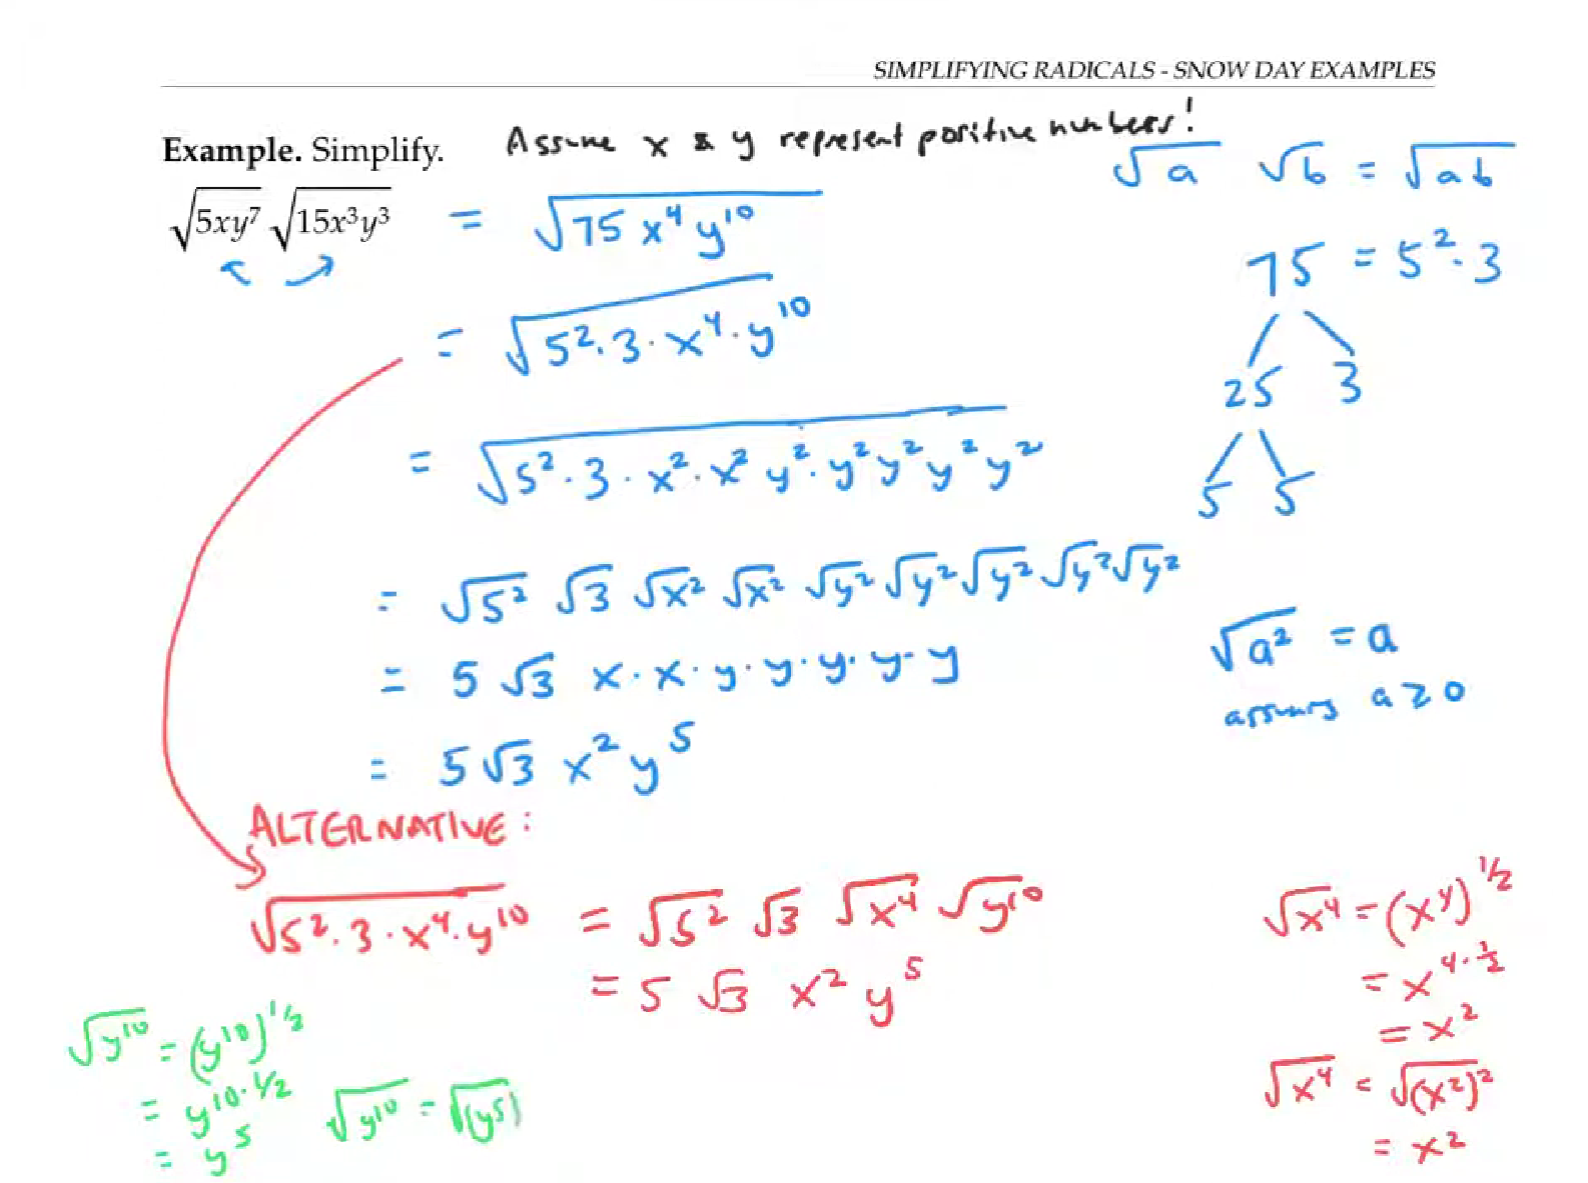 SIMPLIFYING RADICALS - SNOW DAY EXAMPLES
Example. Simplify. Assume x & y represent positive numbers!
√a √b = √ab
√5xy⁷ √15x³y³ = √75 x⁴ y¹⁰
75 = 5² · 3
= √5² · 3 · x⁴ · y¹⁰
25 3
= √5² · 3 · x² · x² y² · y² y² y² y²
5 5
= √5² √3 √x² √x² √y² √y² √y² √y² √y²
√a² = a
= 5 √3 x · x · y · y · y · y · y
assumes a ≥ 0
= 5 √3 x² y⁵
ALTERNATIVE:
√5² · 3 · x⁴ · y¹⁰ = √5² √3 √x⁴ √y¹⁰
= 5 √3 x² y⁵
√x⁴ = (x⁴)^1/2
= x^4·1/2
= x²
√x⁴ = √(x²)²
= x²
√y¹⁰ = (y¹⁰)^1/2
= y^10·1/2
= y⁵
√y¹⁰ = √(y⁵)